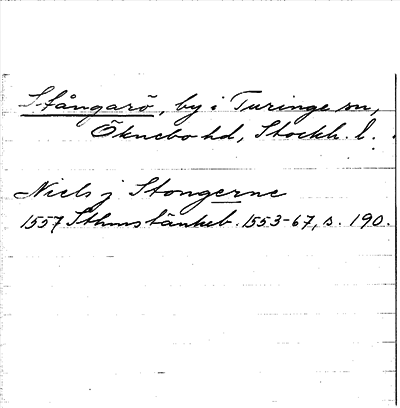 Stångarö, by i Turinge sn,
Öknebo hd, Stockh. l.
Niels j Stongerne
1557 Sthms tänkeb. 1553-67, s. 190.